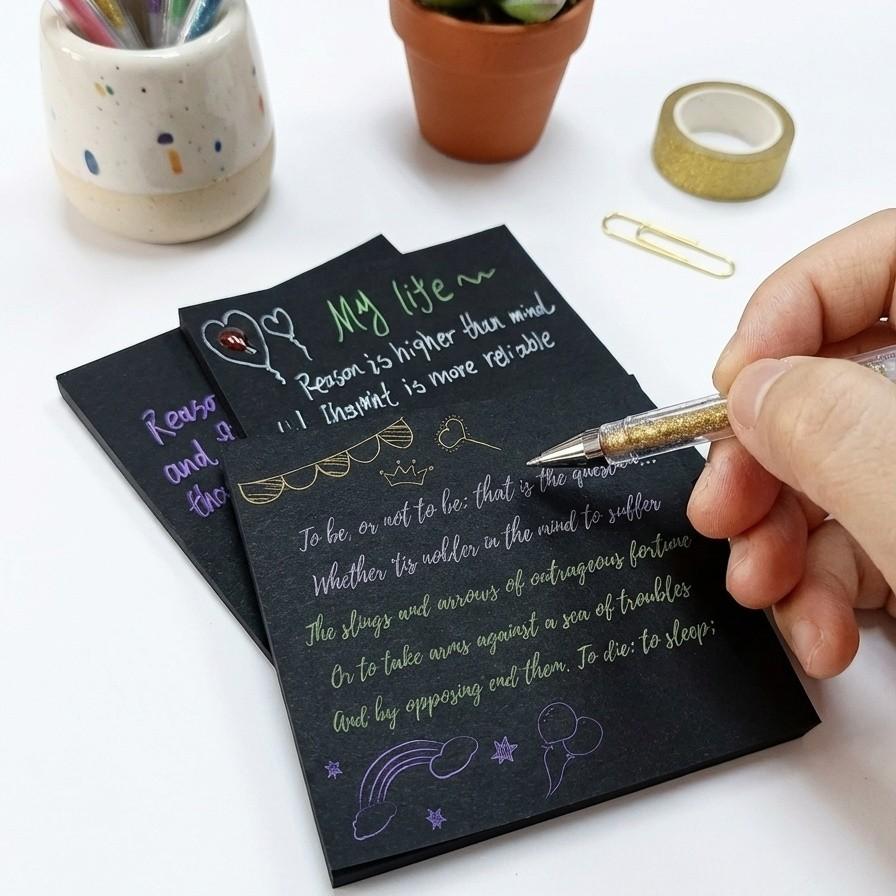 My life ~
Reason is higher than mind
is more reliable
Reaso
and
tha
To be, or not to be: that is the question...
Whether 'tis nobler in the mind to suffer
The slings and arrows of outrageous fortune
Or to take arms against a sea of troubles
And by opposing end them. To die: to sleep;